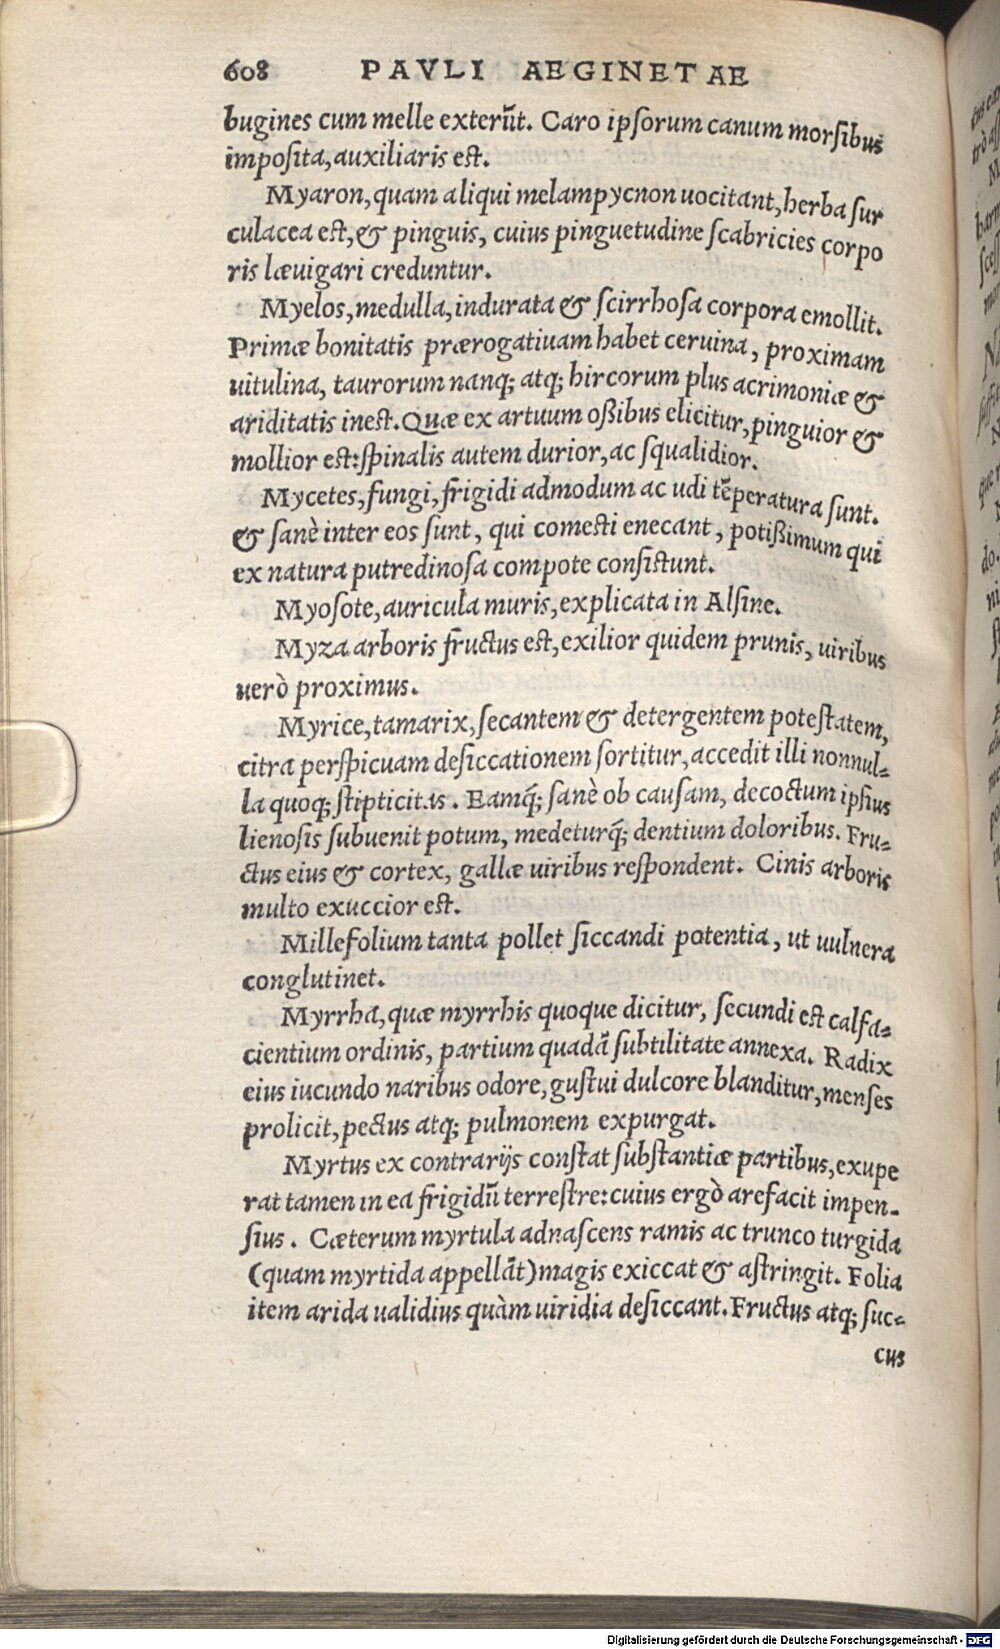 608 PAVLI AEGINETAE
bugines cum melle exterūt. Caro ipſorum canum morſibus
impoſita, auxiliaris est.
Myaron, quam aliqui melampycnon uocitant, herba ſur
culacea est, & pinguis, cuius pinguetudine ſcabricies corpo
ris læuigari creduntur.
Myelos, medulla, indurata & ſcirrhoſa corpora emollit.
Primæ bonitatis prærogatiuam habet ceruina, proximam
uitulina, taurorum nanq; atq; hircorum plus acrimoniæ &
ariditatis inest. Quæ ex artuum oßibus elicitur, pinguior &
mollior est: ſpinalis autem durior, ac ſqualidior.
Mycetes, fungi, frigidi admodum ac udi tēperatura ſunt.
& ſanè inter eos ſunt, qui comesti enecant, potißimum qui
ex natura putredinoſa compote conſistunt.
Myoſote, auricula muris, explicata in Alſine.
Myza arboris fructus est, exilior quidem prunis, uiribus
uerò proximus.
Myrice, tamarix, ſecantem & detergentem potestatem,
citra perſpicuam deſiccationem ſortitur, accedit illi nonnul-
la quoq; stipticitas. Eamq́; ſanè ob cauſam, decoctum ipſius
lienoſis ſubuenit potum, medeturq́; dentium doloribus. Fru-
ctus eius & cortex, gallæ uiribus reſpondent. Cinis arboris
multo exuccior est.
Millefolium tanta pollet ſiccandi potentia, ut uulnera
conglutinet.
Myrrha, quæ myrrhis quoque dicitur, ſecundi est calfa-
cientium ordinis, partium quadā ſubtilitate annexa. Radix
eius iucundo naribus odore, gustui dulcore blanditur, menſes
prolicit, pectus atq; pulmonem expurgat.
Myrtus ex contrarijs constat ſubstantiæ partibus, exupe
rat tamen in ea frigidū terrestre: cuius ergò arefacit impen-
ſius. Cæterum myrtula adnaſcens ramis ac trunco turgida
(quam myrtida appellāt) magis exiccat & astringit. Folia
item arida ualidius quàm uiridia deſiccant. Fructus atq; ſuc-
cus
Digitalisierung gefördert durch die Deutsche Forschungsgemeinschaft - DFG